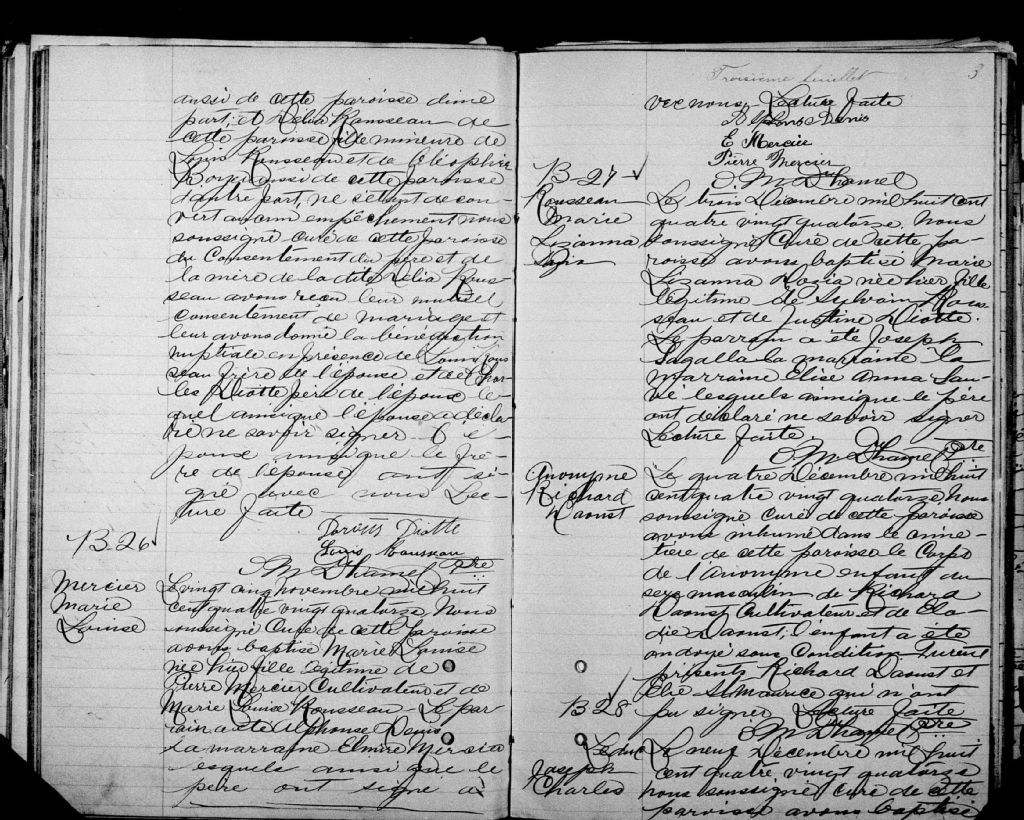 aussi de cette paroisse d'une
part, et Délia Rousseau de
cette paroisse fille mineure de
Louis Rousseau et de Cléophire
aussi de cette paroisse
d'autre part, ne s'étant decou-
vert aucun empêchement nous
soussigné Curé de cette paroisse
du Consentement du père et de
la mère de la dite Délia Rous-
seau avons reçu leur mutuel
consentement de mariage et
leur avons donné la bénédiction
nuptiale en présence de Louis Rous-
seau frère de l'épouse et de Char-
les Diotte père de l'époux le-
quel ainsi que l'épouse a décla-
ré ne savoir signer. L'é-
poux ainsi que le frè-
re de l'épouse ont si-
gné avec nous Lec-
ture faite
Diotte
Louis Rousseau
O M Dhamel Ptre
B-26
Mercier
Marie
Louise
Le vingt cinq novembre mil huit
cent quatre vingt quatorze Nous
soussigné Curé de cette paroisse
avons baptisé Marie Louise
née hier fille légitime de
Pierre Mercier Cultivateur et de
Marie Louise Rousseau - Le par-
rain a été Alphonse Denis
La marraine Elmire Mercier
lesquels ainsi que le
père ont signé a-
Troisième feuillet
3
vec nous, Lecture faite
Denis
E Mercier
Pierre Mercier
O. M Dhamel
B-27
Rousseau
Marie
Lizanna
Le trois Décembre mil huit cent
quatre vingt quatorze, Nous
soussigné Curé de cette pa-
roisse avons baptisé Marie
Lizanna née hier, fille
légitime de Sylvain Rous-
seau et de Justine Diotte.
Le parrain a été Joseph
Lagalla la marraine la
marraine Elise Anna Sau-
vé lesquels ainsi que le père
ont déclaré ne savoir signer
Lecture faite
O. M Dhamel Ptre
Anonyme
Richard
Daoust
Le quatre Décembre mil huit
cent quatre vingt quatorze, Nous
soussigné Curé de cette paroisse
avons inhumé dans le cime-
tière de cette paroisse le Corps
de l'Anonyme enfant du
sexe masculin de Richard
Daoust Cultivateur et de Elo-
die Daoust; l'enfant a été
ondoyé sous Condition Furent
présents Richard Daoust et
Elie St Maurice qui n'ont
pu signer Lecture faite
O M Dhamel Ptre
B 28
Leduc
Joseph
Charles
Le neuf Décembre mil huit
cent quatre, vingt quatorze
nous soussigné Curé de cette
paroisse avons baptisé